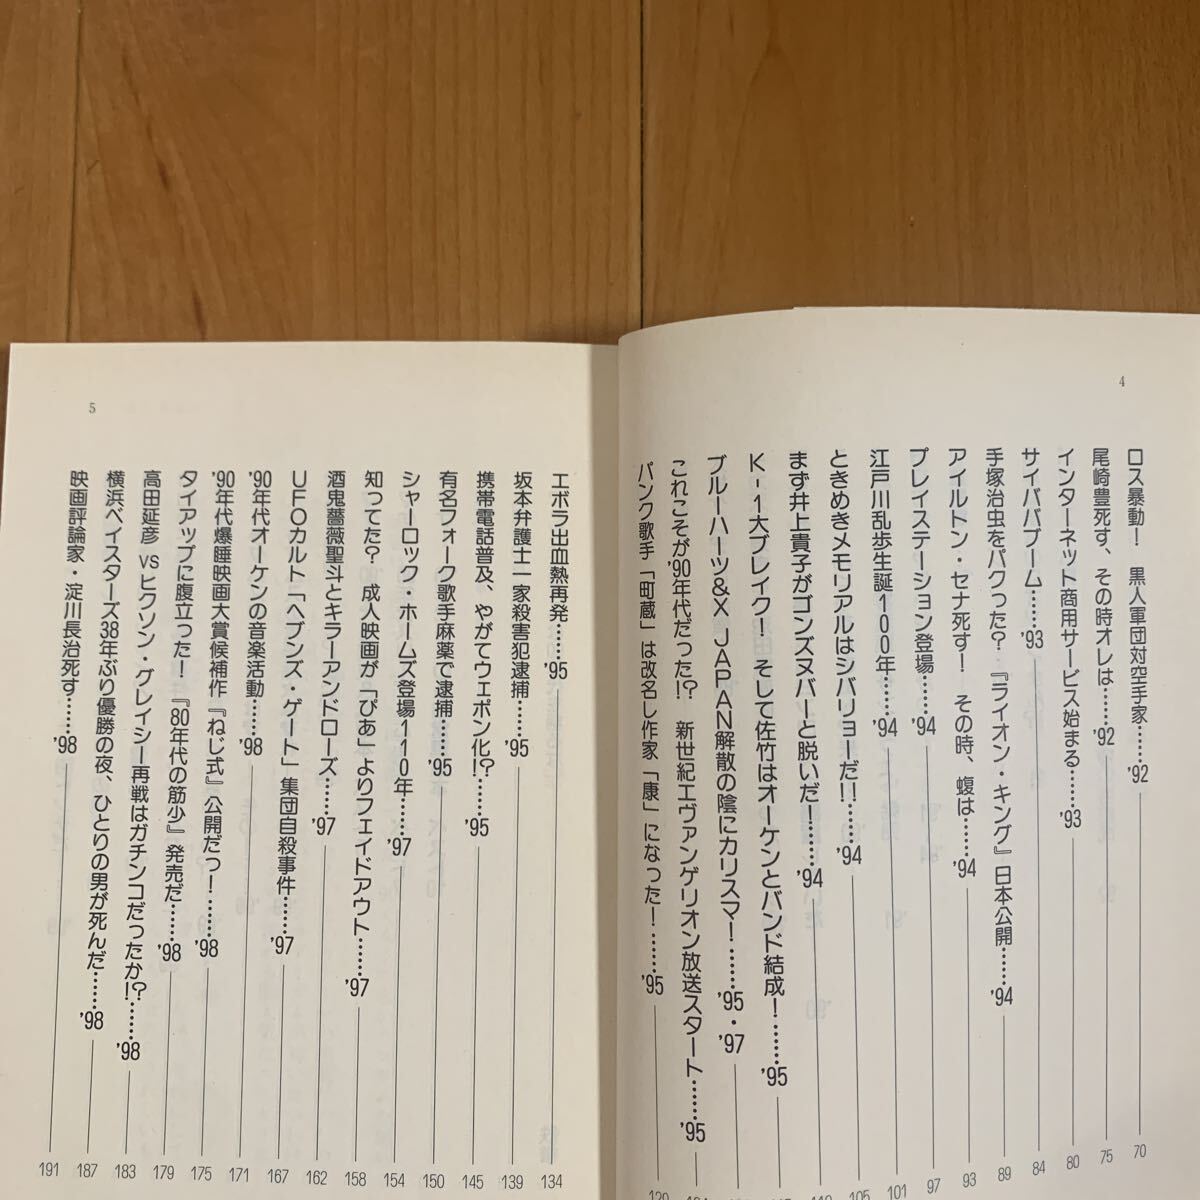 4
ロス暴動！　黒人軍団対空手家……'92 70
尾崎豊死す、その時オレは……'92 75
インターネット商用サービス始まる……'93 80
サイババブーム……'93 84
手塚治虫をパクった？『ライオン・キング』日本公開……'94 89
アイルトン・セナ死す！　その時、蝮は……'94 93
プレイステーション登場……'94 97
江戸川乱歩生誕100年……'94 101
ときめきメモリアルはシバリョーだ!!……'94 105
まず井上貴子がゴンズヌバーと脱いだ！……'94
K-1大ブレイク！　そして佐竹はオーケンとバンド結成！……'95
ブルーハーツ&X JAPAN解散の陰にカリスマ！……'95・'97
これこそが'90年代だった!?　新世紀エヴァンゲリオン放送スタート……'95
パンク歌手「町蔵」は改名し作家「康」になった！……'95
5
エボラ出血熱再発……'95 134
坂本弁護士一家殺害犯逮捕……'95 139
携帯電話普及、やがてウェポン化!?……'95 145
有名フォーク歌手麻薬で逮捕……'95 150
シャーロック・ホームズ登場110年……'97 154
知ってた？　成人映画が「ぴあ」よりフェイドアウト……'97 158
酒鬼薔薇聖斗とキラーアンドローズ……'97 162
UFOカルト「ヘブンズ・ゲート」集団自殺事件……'97 167
'90年代オーケンの音楽活動……'98 171
'90年代爆睡映画大賞候補作『ねじ式』公開だっ！……'98 175
タイアップに腹立った！『80年代の筋少』発売だ……'98 179
高田延彦 VS ヒクソン・グレイシー再戦はガチンコだったか!?……'98 183
横浜ベイスターズ38年ぶり優勝の夜、ひとりの男が死んだ……'98 187
映画評論家・淀川長治死す……'98 191